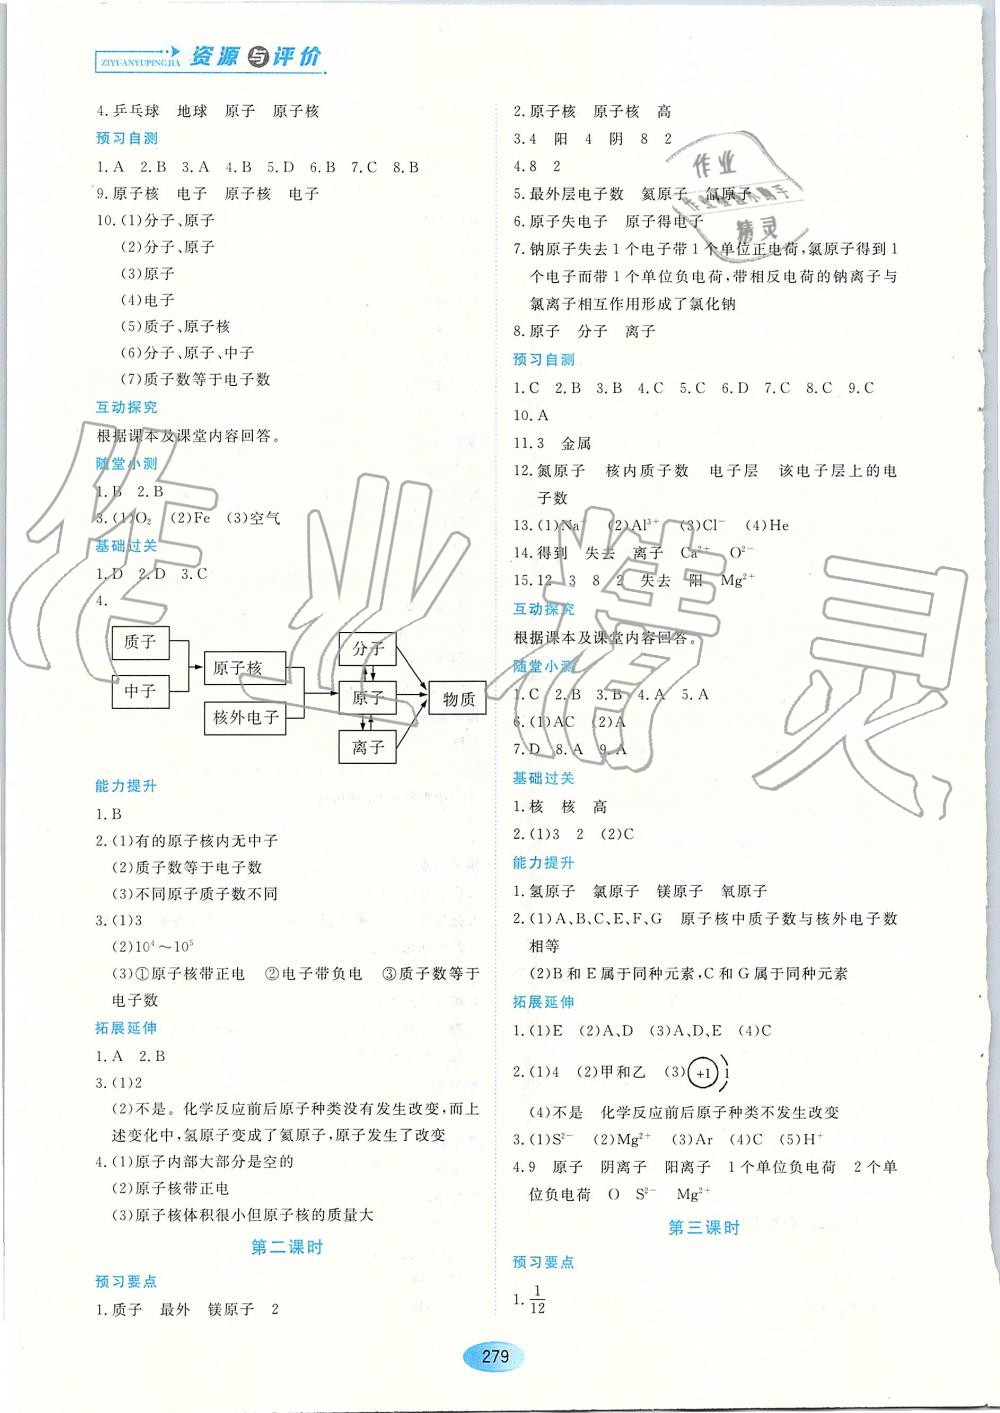 ZIYUANYUPINGJIA 资源与评价
4.乒乓球 地球 原子 原子核
预习自测
1.A 2.B 3.A 4.B 5.D 6.B 7.C 8.B
9.原子核 电子 原子核 电子
10.(1)分子、原子
(2)分子、原子
(3)原子
(4)电子
(5)质子、原子核
(6)分子、原子、中子
(7)质子数等于电子数
互动探究
根据课本及课堂内容回答。
随堂小测
1.B 2.B
3.(1)O₂ (2)Fe (3)空气
基础过关
1.D 2.D 3.C
4.
质子
中子
原子核
核外电子
分子
原子
离子
物质
能力提升
1.B
2.(1)有的原子核内无中子
(2)质子数等于电子数
(3)不同原子质子数不同
3.(1)3
(2)10⁴～10⁵
(3)①原子核带正电 ②电子带负电 ③质子数等于
电子数
拓展延伸
1.A 2.B
3.(1)2
(2)不是。化学反应前后原子种类没有发生改变,而上
述变化中,氢原子变成了氦原子,原子发生了改变
4.(1)原子内部大部分是空的
(2)原子核带正电
(3)原子核体积很小但原子核的质量大
第二课时
预习要点
1.质子 最外 镁原子 2
2.原子核 原子核 高
3.4 阳 4 阴 8 2
4.8 2
5.最外层电子数 氦原子 氖原子
6.原子失电子 原子得电子
7.钠原子失去1个电子带1个单位正电荷,氯原子得到1
个电子而带1个单位负电荷,带相反电荷的钠离子与
氯离子相互作用形成了氯化钠
8.原子 分子 离子
预习自测
1.C 2.B 3.B 4.C 5.C 6.D 7.C 8.C 9.C
10.A
11.3 金属
12.氮原子 核内质子数 电子层 该电子层上的电
子数
13.(1)Na (2)Al³⁺ (3)Cl⁻ (4)He
14.得到 失去 离子 Ca²⁺ O²⁻
15.12 3 8 2 失去 阳 Mg²⁺
互动探究
根据课本及课堂内容回答。
随堂小测
1.C 2.B 3.B 4.A 5.A
6.(1)AC (2)A
7.D 8.A 9.A
基础过关
1.核 核 高
2.(1)3 2 (2)C
能力提升
1.氢原子 氯原子 镁原子 氧原子
2.(1)A、B、C、E、F、G 原子核中质子数与核外电子数
相等
(2)B和E属于同种元素,C和G属于同种元素
拓展延伸
1.(1)E (2)A、D (3)A、D、E (4)C
2.(1)4 (2)甲和乙 (3) +1 1
(4)不是 化学反应前后原子种类不发生改变
3.(1)S²⁻ (2)Mg²⁺ (3)Ar (4)C (5)H⁺
4.9 原子 阴离子 阳离子 1个单位负电荷 2个单
位负电荷 O S²⁻ Mg²⁺
第三课时
预习要点
1. 1/12
279
作业精灵
作业
精灵